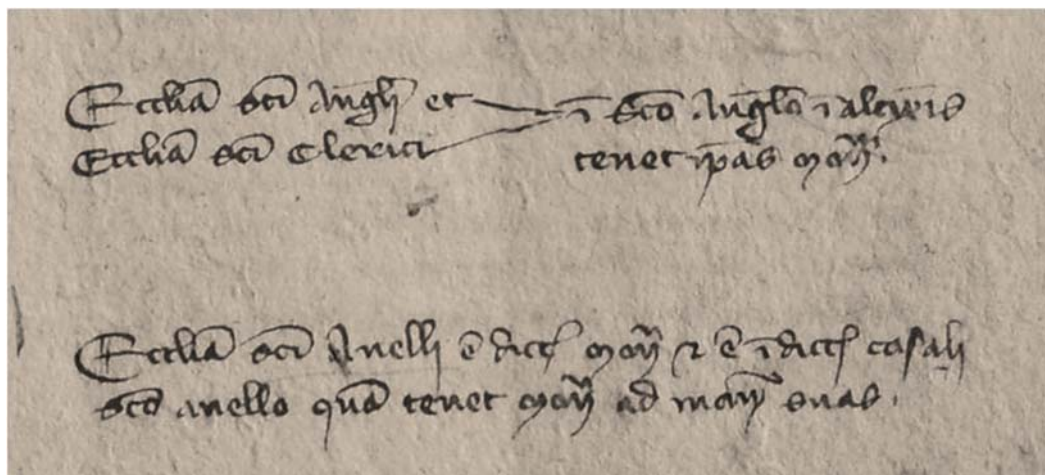 Ecclia sci Angli et
Ecclia sci Clerici
i sco Anglo i
tenet ipas mon.
Ecclia sci Anelli e dict mon et e i dict casali
sco anello qua tenet mon ad man suas.